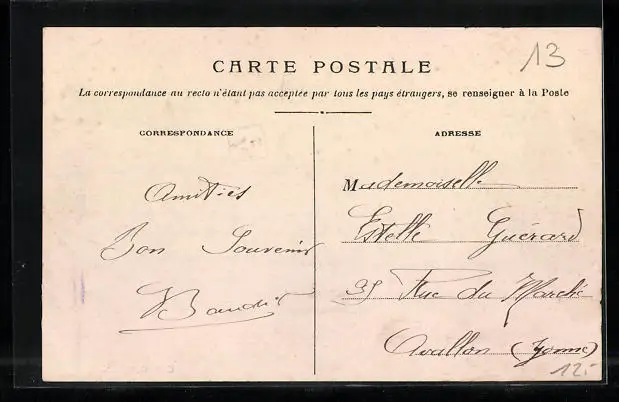 13
CARTE POSTALE
La correspondance au recto n'étant pas acceptée par tous les pays étrangers, se renseigner à la Poste
CORRESPONDANCE
ADRESSE
Amitiés
Bon Souvenir
Mademoiselle
Estelle Guérard
Rue du Marché
Avallon (Yonne)
12.-